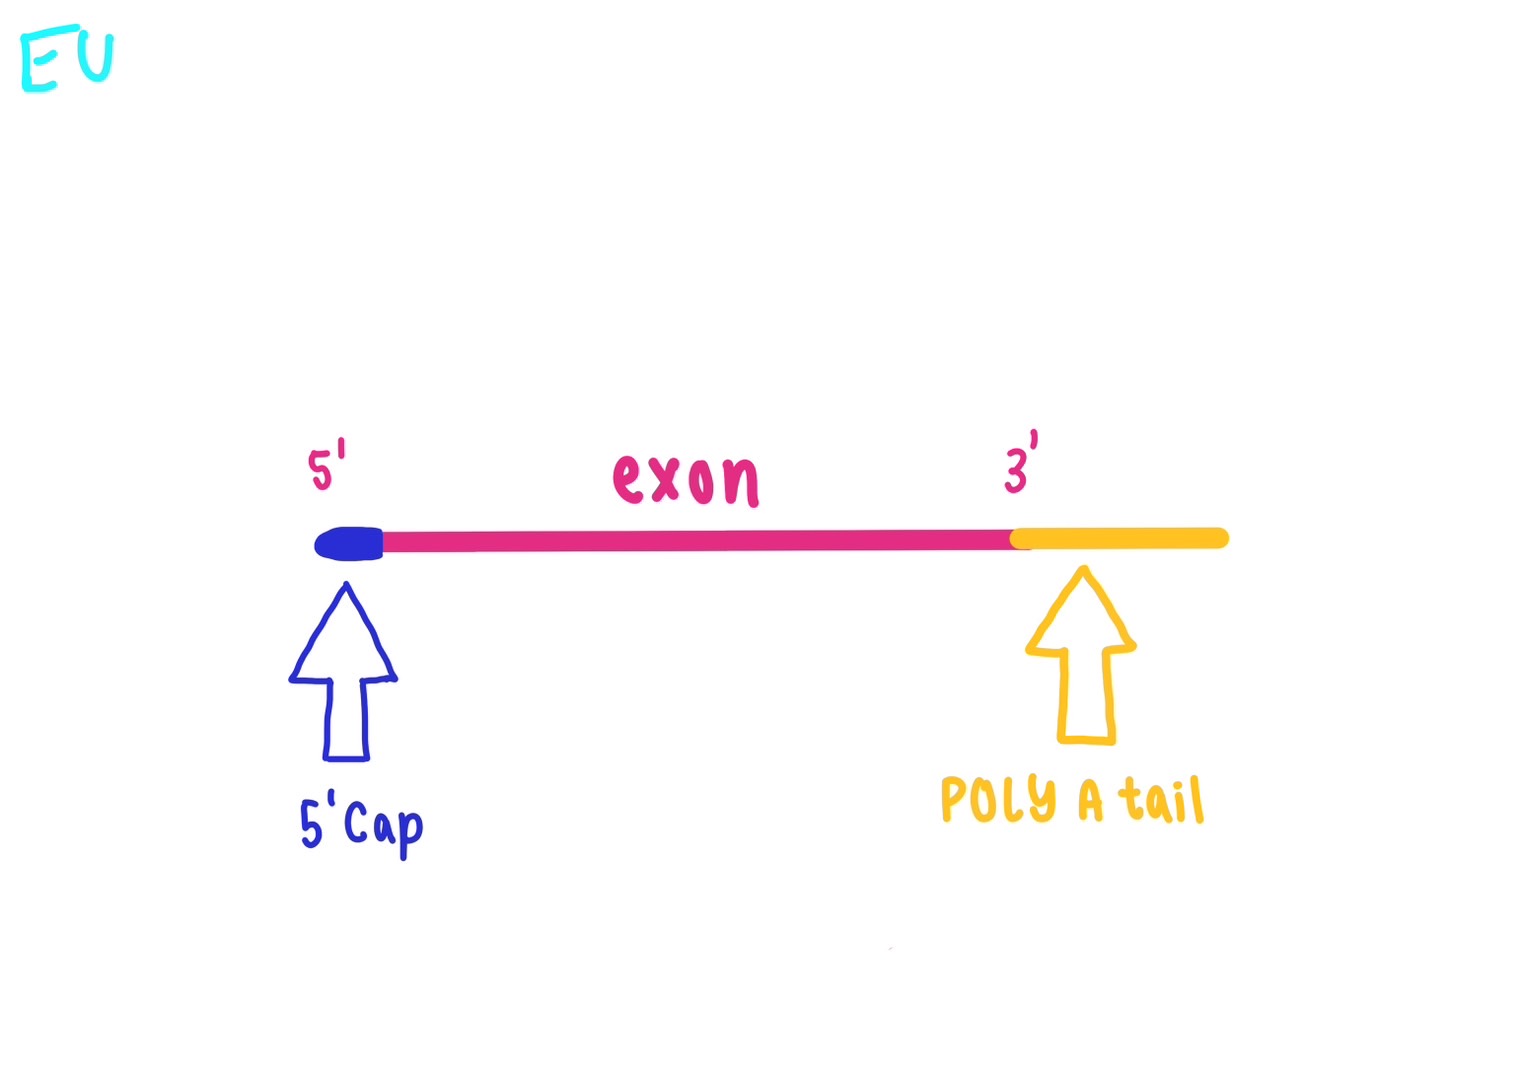 EU
5' exon 3'
5'Cap
POLY A tail